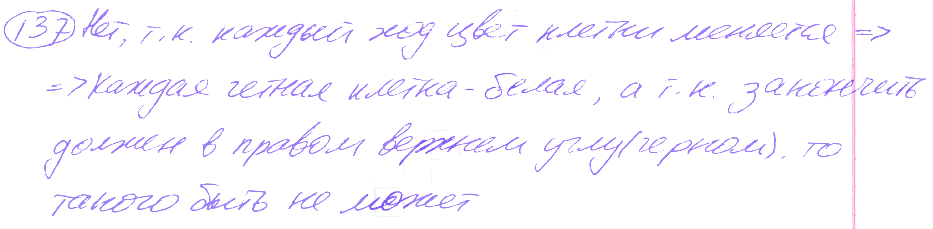 137 Нет, т.к. каждый ход цвет клетки меняется =>
=> каждая четная клетка - белая, а т.к. закончить
должен в правом верхнем углу(черном), то
такого быть не может